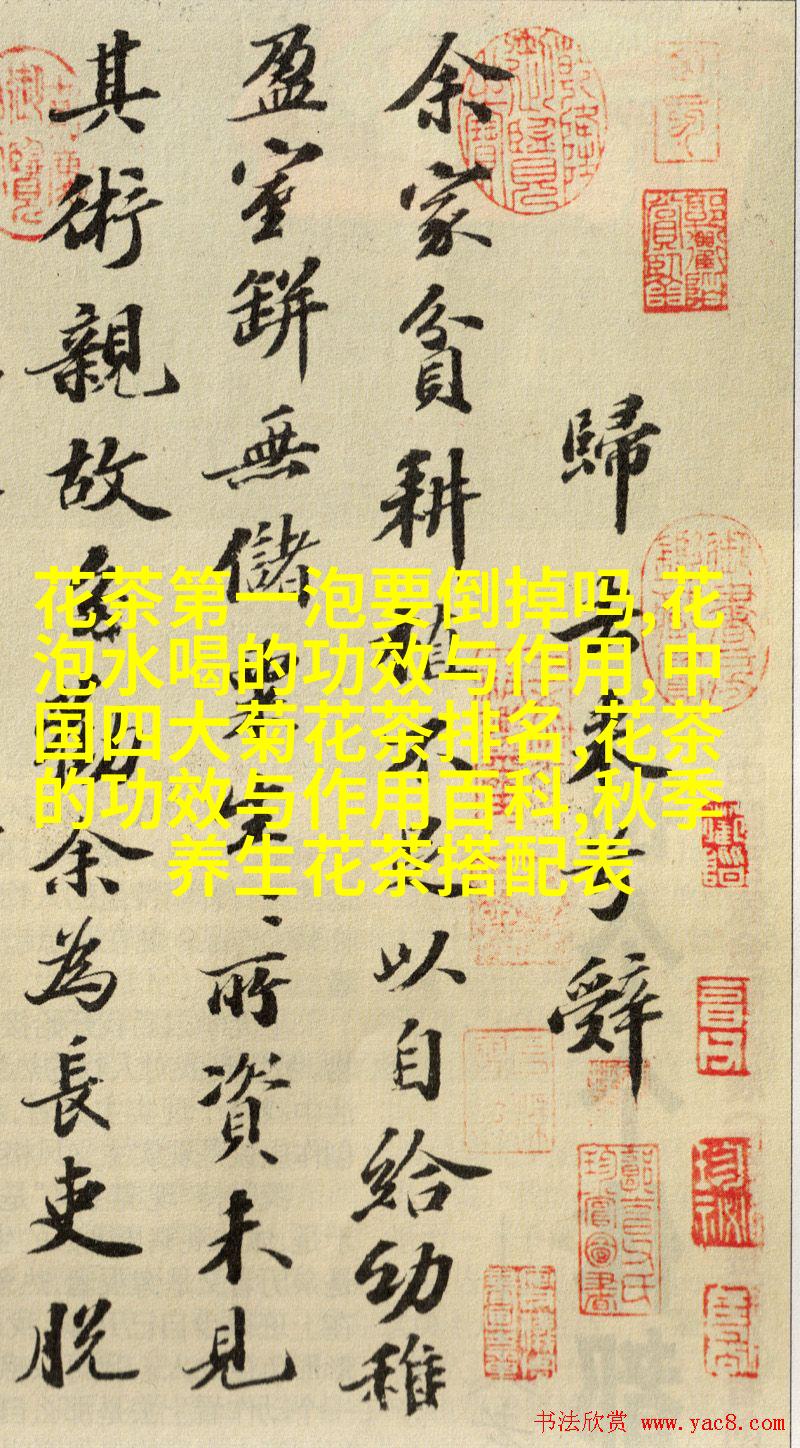 歸去來兮辭
余家貧耕植不足以自給幼稚
盈室缾無儲粟生〻所資未見
其術親故多勸余為長吏脫
花茶第一泡要倒掉吗,花
泡水喝的功效与作用,中
国四大菊花茶排名,花茶
的功效与作用百科,秋季
养生花茶搭配表
乾隆御覽之寶
书法欣赏 www.yac8.com